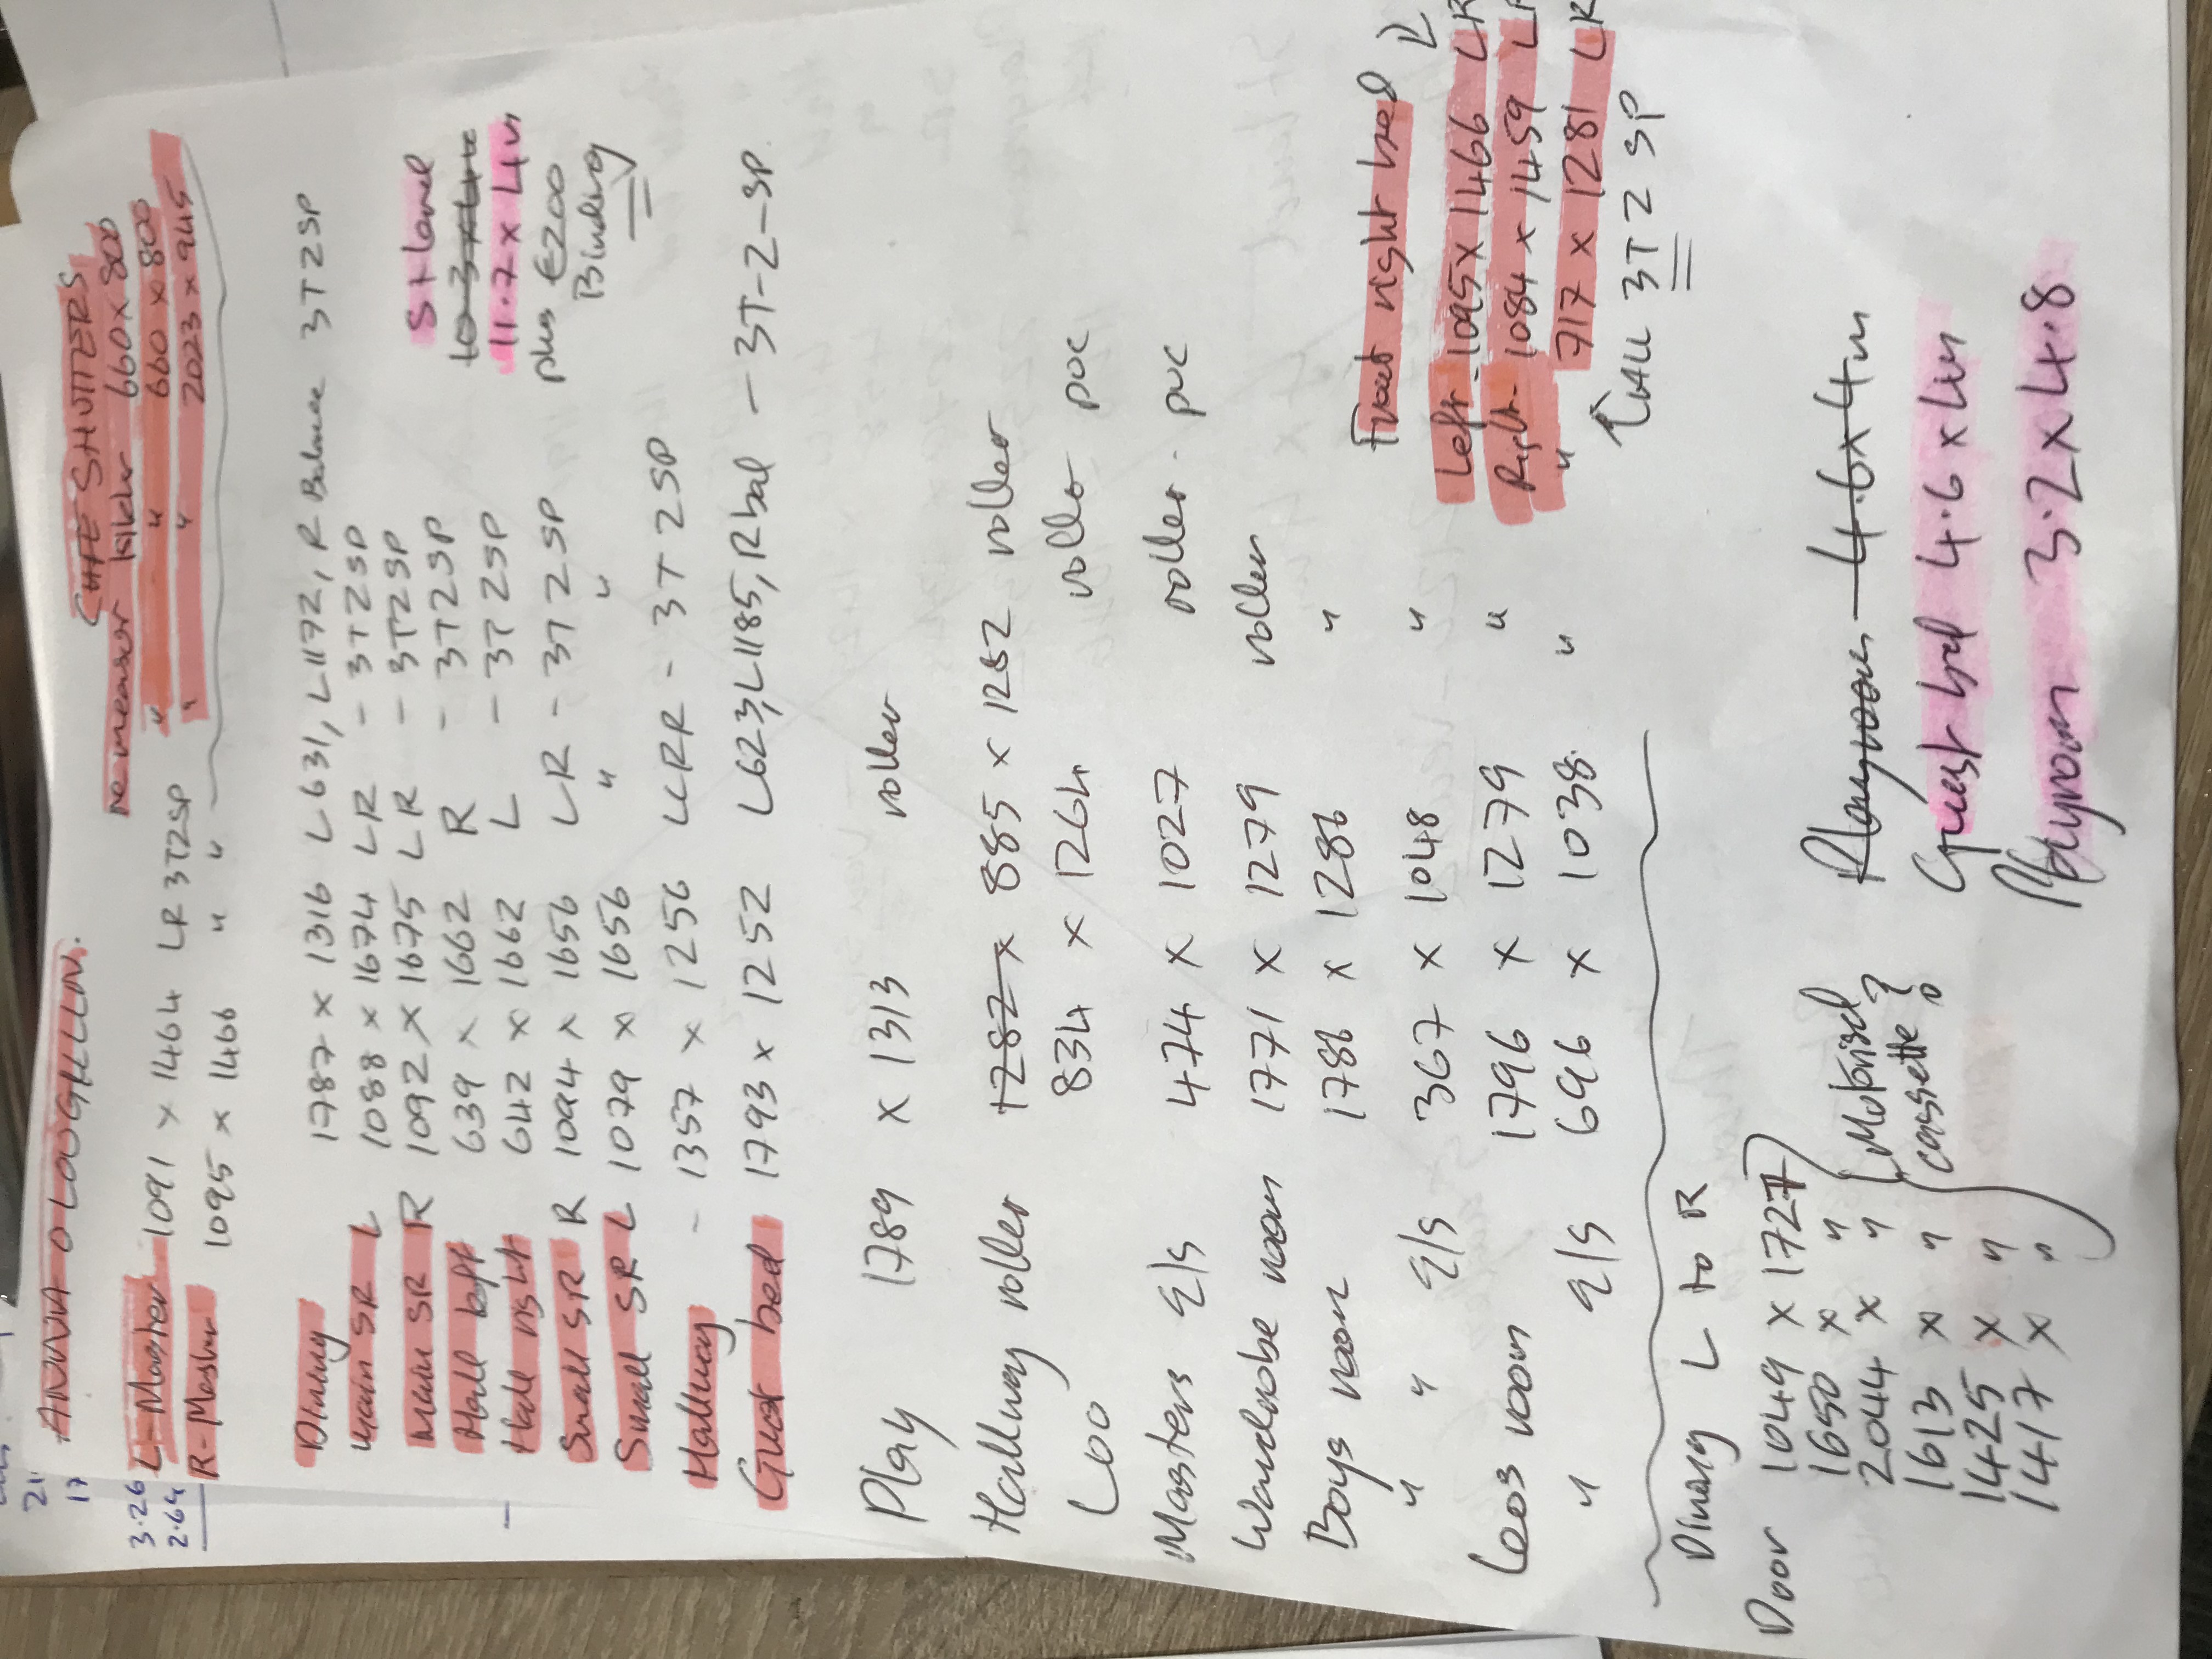 ANNA O LOUGHLIN.
CAFE SHUTTERS
remeasur kitchen 660 x 800
" " 660 x 800
" " 2023 x 945
L-Master 1091 x 1464 LR 3T2SP
R-Master 1095 x 1466 " "
Dining 1787 x 1316 L631, L1172, R Balance 3T2SP
Main SR L 1088 x 1674 LR - 3T2SP
Main SR R 1092 x 1675 LR - 3T2SP
Hall left 639 x 1662 R - 3T2SP
Hall right 642 x 1662 L - 3T2SP
Small SR R 1094 x 1656 LR - 3T2SP
Small SR L 1079 x 1656 " "
Hallway - 1357 x 1256 LLRR - 3T2SP
Guest bed 1793 x 1252 L623, L1185, R bal - 3T-2-SP
St Land
10.3 x 4m
11.7 x 4m
plus €200
Binding
Play 1789 x 1313 roller
Hallway roller 1282 x 885 x 1252 roller
Loo 834 x 1264 roller pvc
Masters E/s 474 x 1027 roller - pvc
Wardrobe room 1771 x 1279 roller
Boys room 1786 x 1286 "
" " E/s 367 x 1048 "
Lees room 1796 x 1279 "
" E/s 696 x 1038 "
Front right bed
Left - 1095 x 1466 LR
Right - 1084 x 1459 LR
" 717 x 1281 LR
↑ all 3T 2 SP
Dining L to R
Door 1049 x 1727
1650 x "
2044 x "
1613 x "
1425 x "
1417 x "
Motorised
cassette?
Playroom 4.6 x 4m
Guest bed 4.6 x 4m
Playroom 3.2 x 4.8
3.26
2.64
21
17